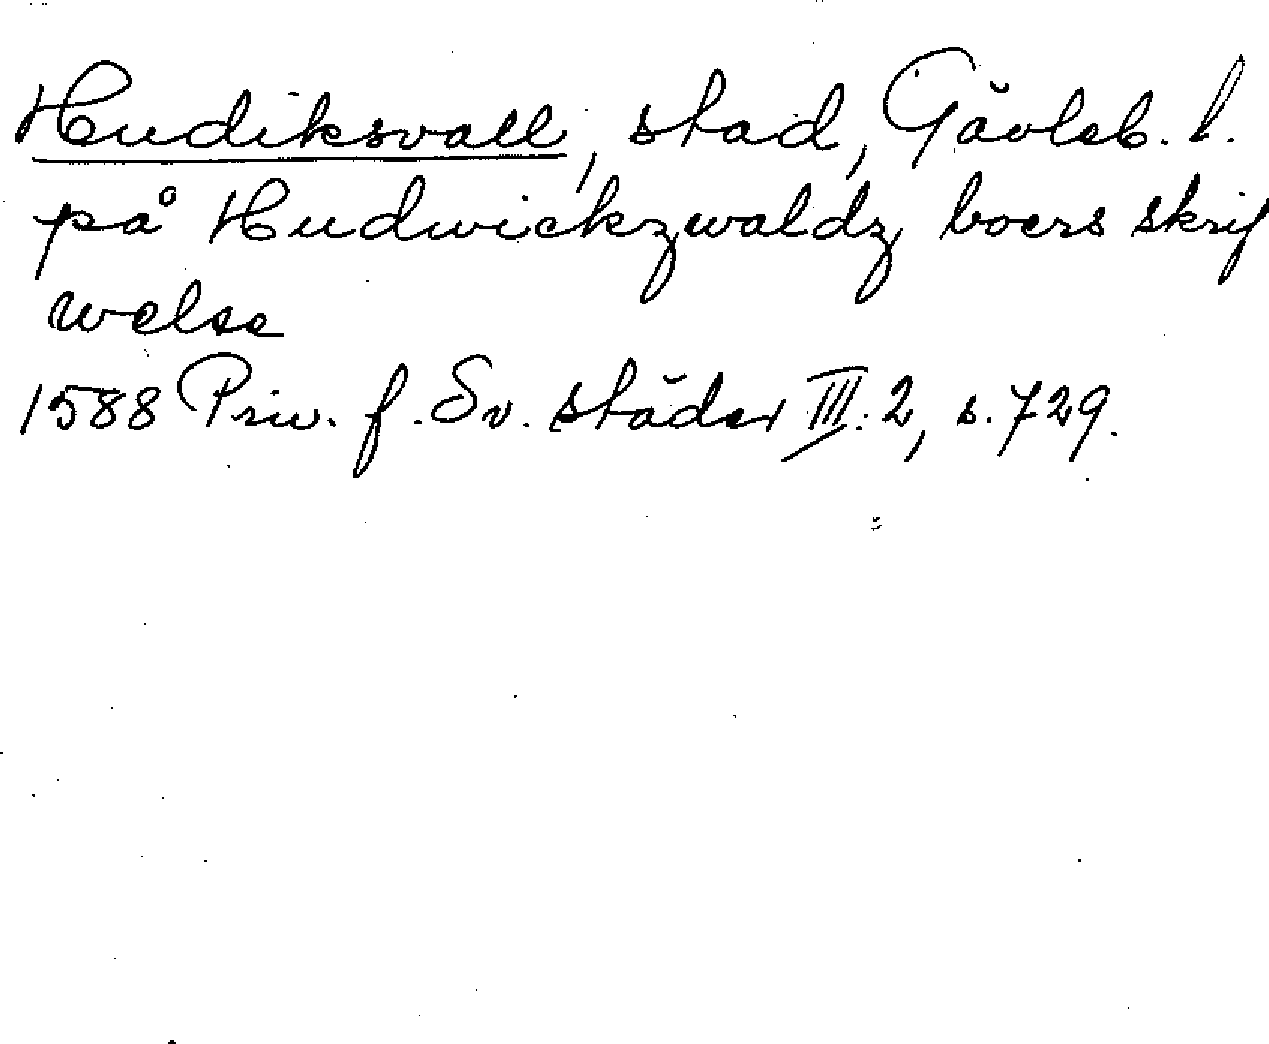 Hudiksvall, stad, Gävleb. l.
på Hudwickzwaldz boers skrif
welse
1588 Priv. f. Sv. städer III: 2, s. 729.